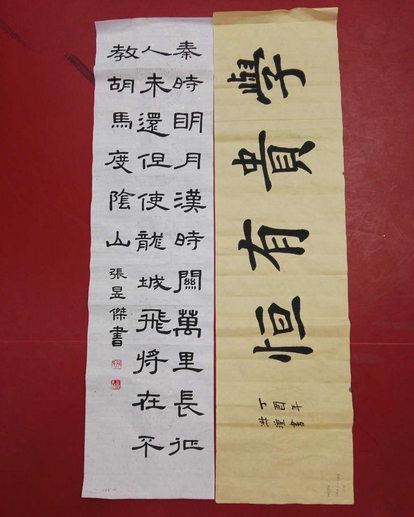 學貴有恒
丁酉年
書
秦時明月漢時關萬里長征
人未還但使龍城飛將在不
教胡馬度陰山
張昱傑書